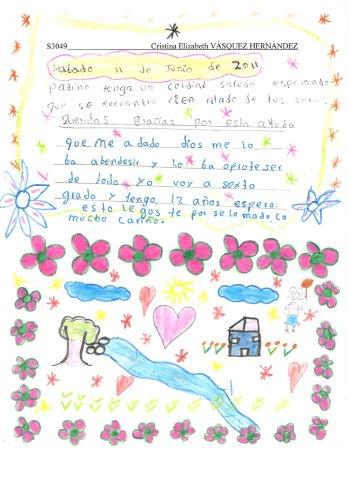 S3049 Cristina Elizabeth VÁSQUEZ HERNÁNDEZ
sabado 11 de Junio de 2011
padrino tenga un cordial saludo esperando
que se encuentre bien al lado de los seres
Queridos gracias por esta ayuda
que me a dado dios me lo
ba abendesir y lo ba aproteser
de todo yo voy a sexto
grado y tengo 12 años espero
esto le gus te por se lo mado co
mucho cariño.